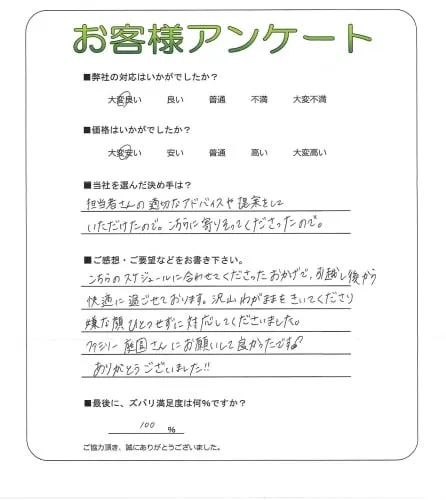 お客様アンケート
■弊社の対応はいかがでしたか？
大変良い　良い　普通　不満　大変不満
■価格はいかがでしたか？
大変安い　安い　普通　高い　大変高い
■当社を選んだ決め手は？
担当者さんの適切なアドバイスや提案をして
いただけたので。こちらに寄りそってくださったので。
■ご感想・ご要望などをお書き下さい。
こちらのスケジュールに合わせてくださったおかげで、引越し後から
快適に過ごせております。沢山わがままをきいてくださり
嫌な顔ひとつせずに対応してくださいました。
ファミリー庭園さんにお願いして良かったです♪
ありがとうございました!!
■最後に、ズバリ満足度は何%ですか？
100 %
ご協力頂き、誠にありがとうございました。